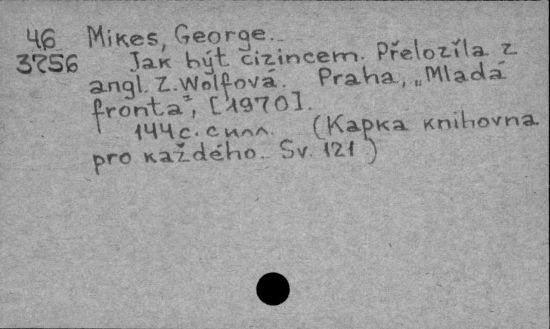 46 Mikes, George.
3756 Jak být cizincem. Přelozíla z
angl. Z. Wolfová. Praha, „Mladá
fronta", [1970].
144 с. с илл. (Kapka knihovna
pro každého. Sv. 121)